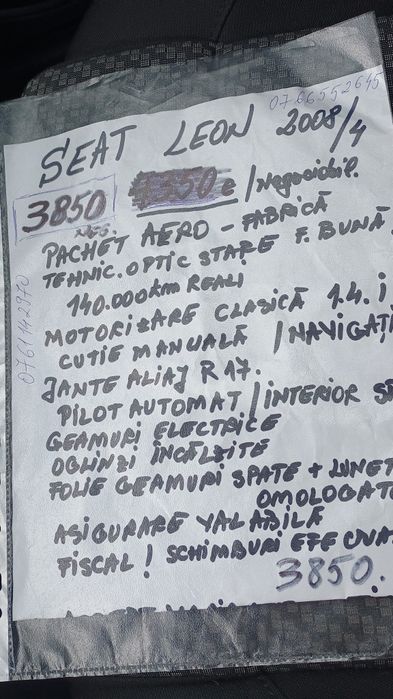 0766552645
SEAT LEON 2008/4
3850 NEG. 4350 e /Negociabil.
PACHET AERO - FABRICĂ
TEHNIC. OPTIC STARE F. BUNĂ
140.000km REALI
MOTORIZARE CLASICĂ 1.4. i
CUTIE MANUALĂ /NAVIGAȚI
JANTE ALIAJ R17.
PILOT AUTOMAT/INTERIOR
GEAMURI ELECTRICE
OGLINZI ÎNCĂLZITE
FOLIE GEAMURI SPATE + LUNET
OMOLOGAT
ASIGURARE VALABILĂ
FISCAL! SCHIMBURI
3850.